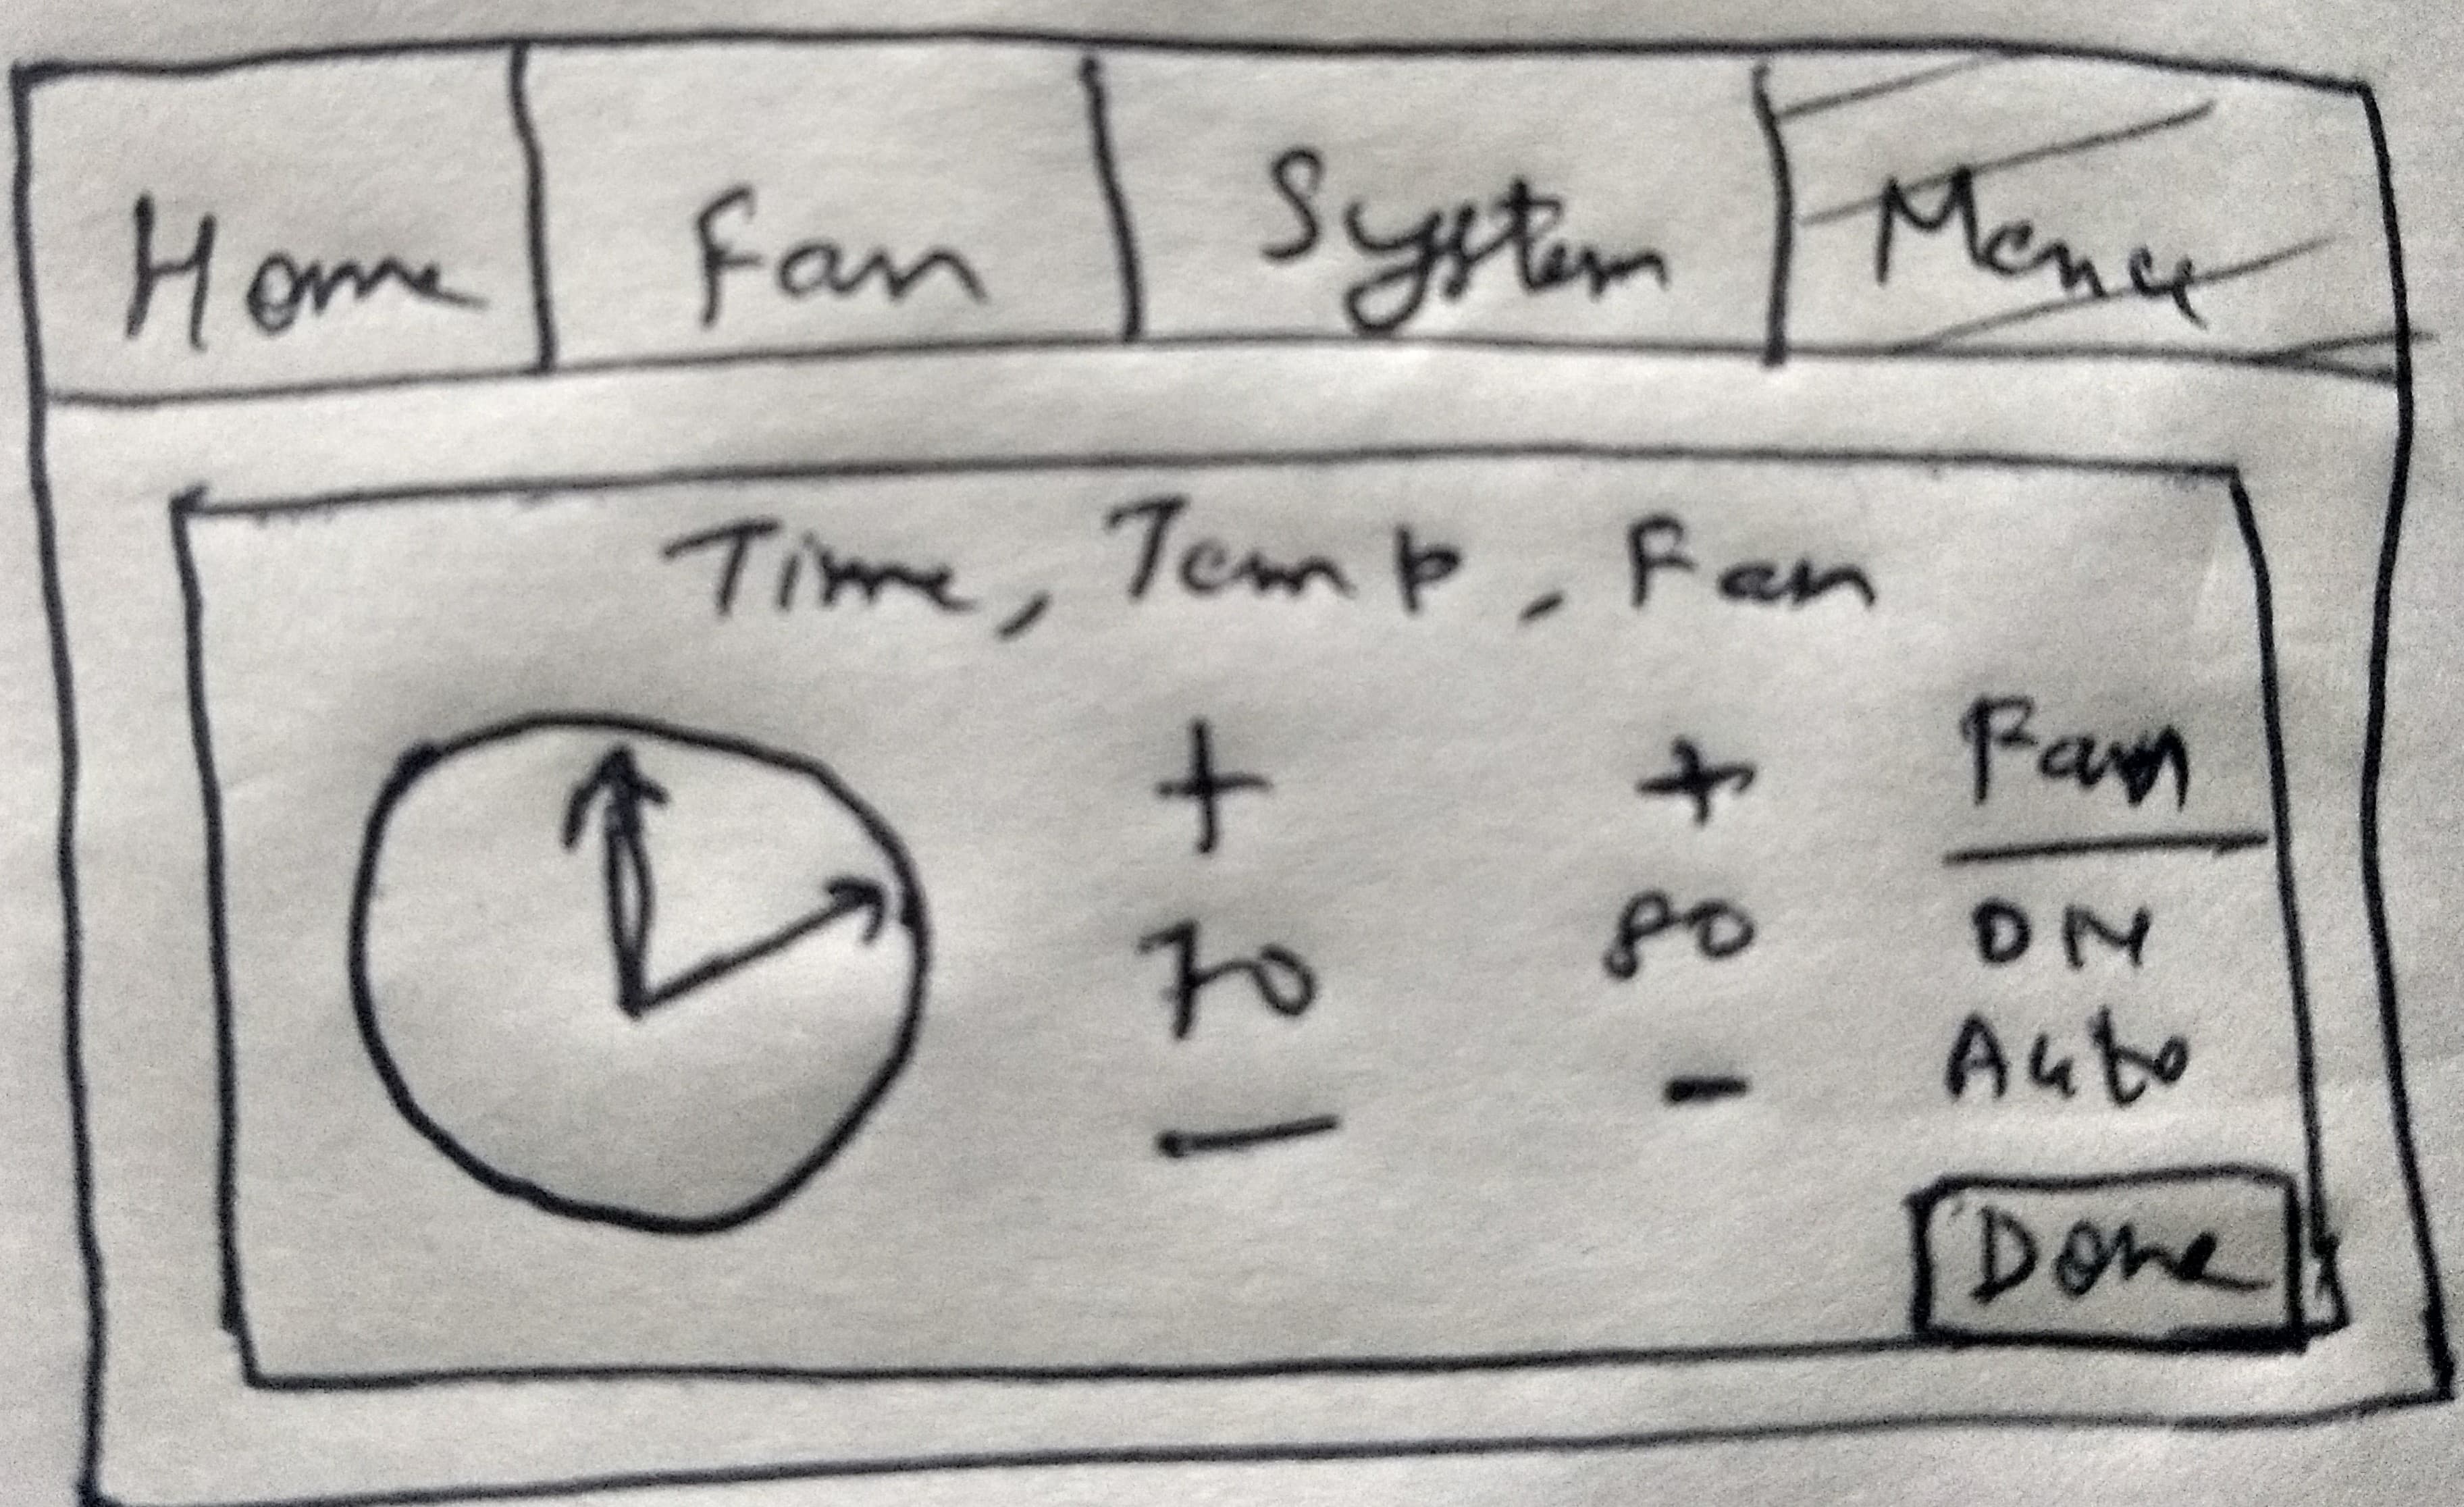 Home Fan System Menu
Time, Temp, Fan
+ + Fan
70 80 ON
- - Auto
Done